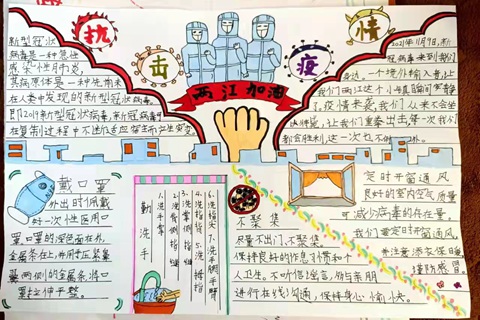 抗击疫情
两江加油
新型冠状
病毒是一种急性
感染性肺炎
其病原体是一种先前未
在人类中发现的新型冠状病毒,
即2019新型冠状病毒,新冠病毒可
在复制过程中不断适应宿主而产生突变
2021年11月9日,新
冠病毒来到我们
身边,一个境外输入者,让
我们两江这个小县瞬间安静
了,疫情来袭,我们从来不会坐
以待毙,让我们重拳出击,每一次我们
都会胜利,这一次也不例外.
戴口罩
外出时佩戴
一次性医用口
罩,口罩的深色面在外,
金属条在上,并用手压紧鼻
罩两侧的金属条,将口
罩拉伸平整.
勤洗手
1.洗手掌
2.洗背侧指缝
3.洗掌侧指缝
4.洗指背
5.洗拇指
6.洗指尖
7.洗手腕手臂
不聚集
尽量不出门,不聚集.
保持良好的作息习惯和个
人卫生.不听信谣言,你与亲朋
进行在线沟通,保持身心愉快.
定时开窗通风
良好的室内空气质量
可减少病毒的存在量.
我们要定时开窗通风
并注意添衣保暖
谨防感冒.